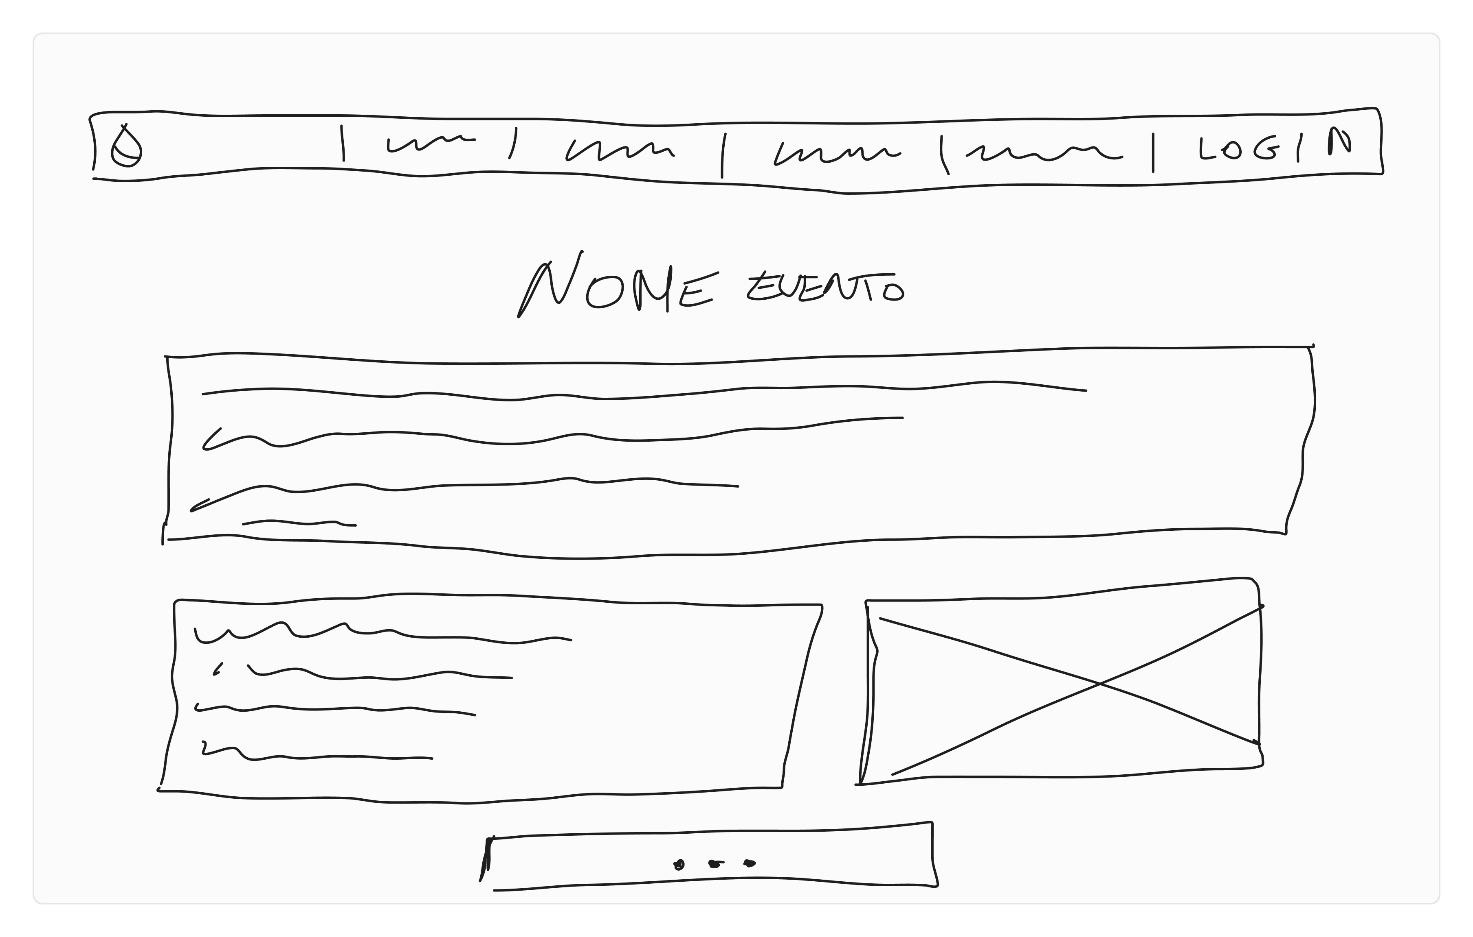 LOGIN
NOME EVENTO